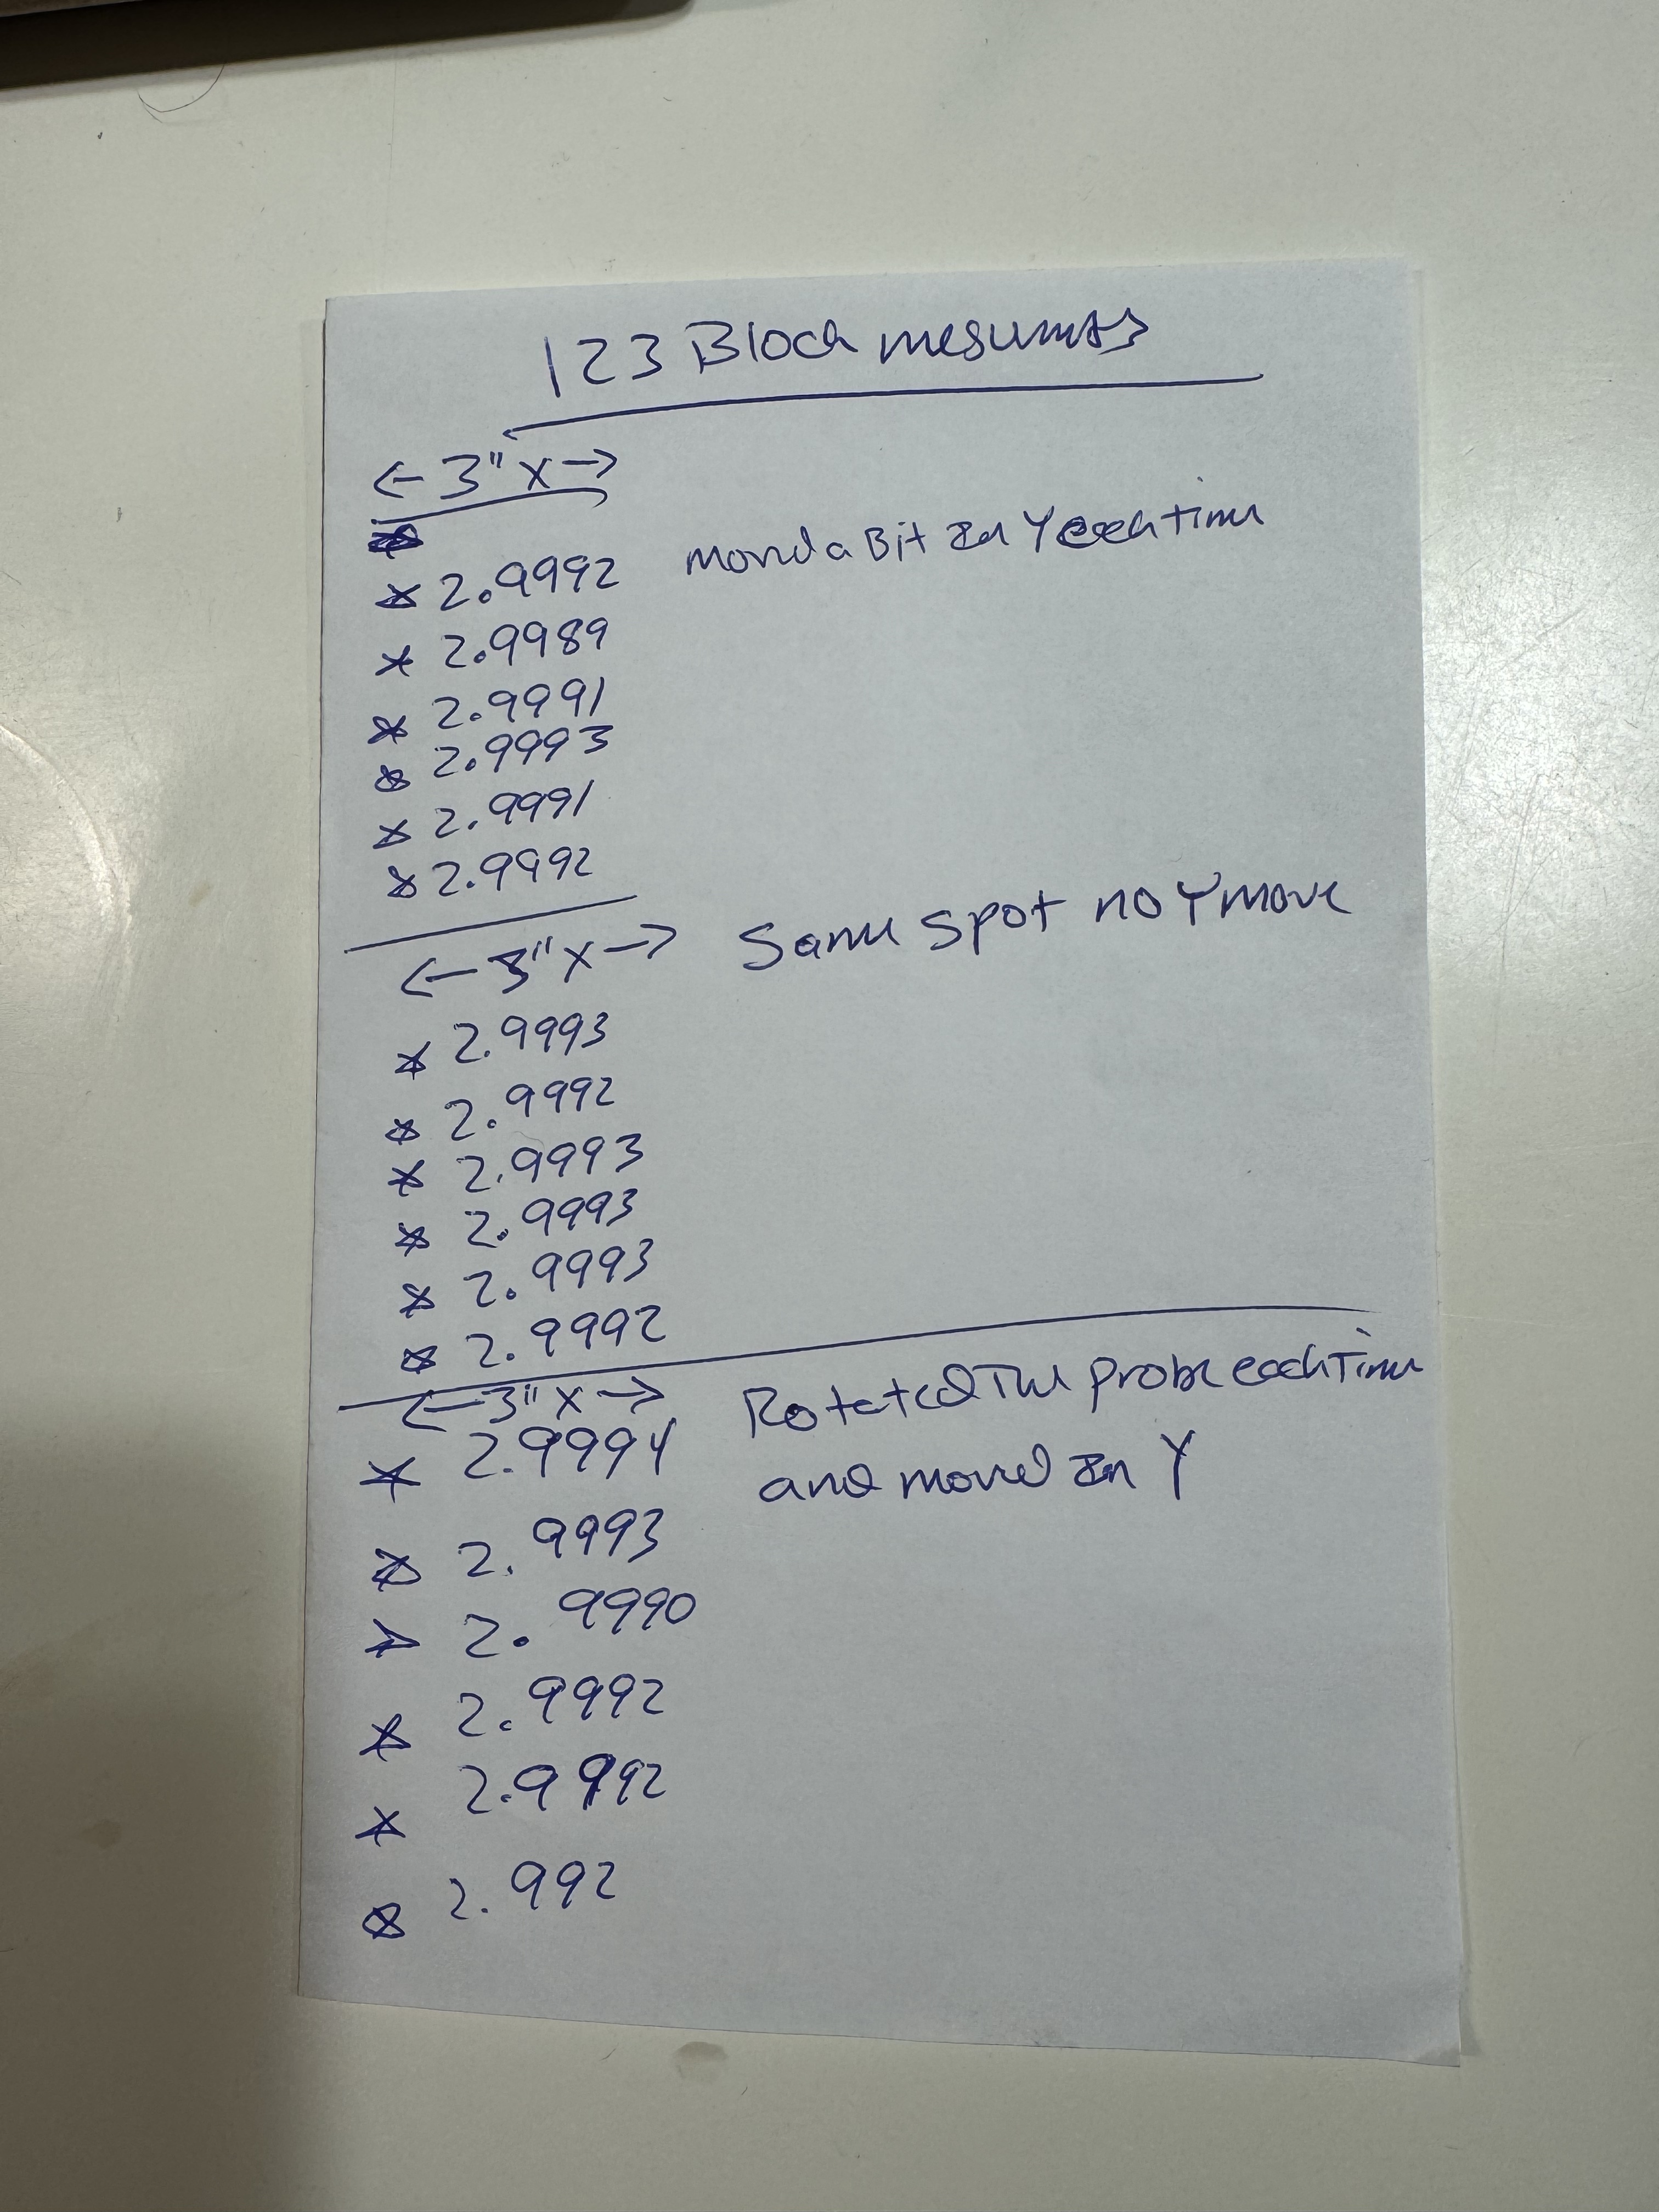 123 Block mesurmts
← 3" X →
* 2.9992 moved a Bit In Y each time
* 2.9989
* 2.9991
* 2.9993
* 2.9991
* 2.9992
← 3" X → Same spot no Y move
* 2.9993
* 2.9992
* 2.9993
* 2.9993
* 2.9993
* 2.9992
← 3" X → Rotated The probe each Time
* 2.9994 and moved In Y
* 2.9993
* 2.9990
* 2.9992
* 2.9992
* 2.992